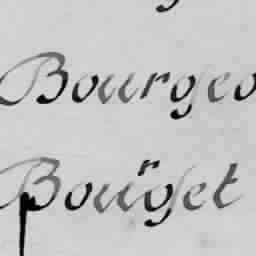 Bourgeo
Bourget